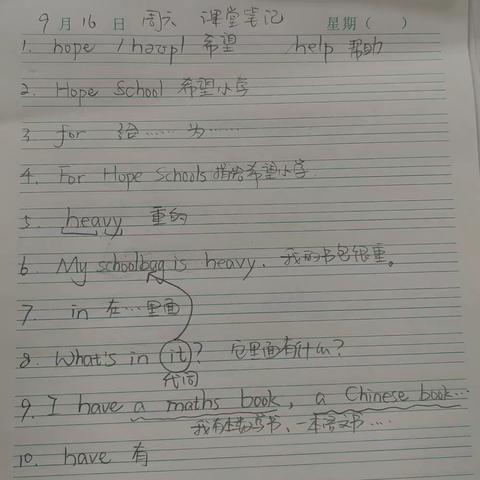 9月16日 周六 课堂笔记 星期( )
1. hope /həʊp/ 希望 help 帮助
2. Hope School 希望小学
3 for 给…… 为……
4. For Hope Schools 捐给希望小学.
5. heavy 重的
6. My schoolbag is heavy. 我的书包很重。
7. in 在…里面
8. What's in it? 它里面有什么?
代词
9. I have a maths book, a Chinese book…
我有一本数学书、一本语文书…
10. have 有